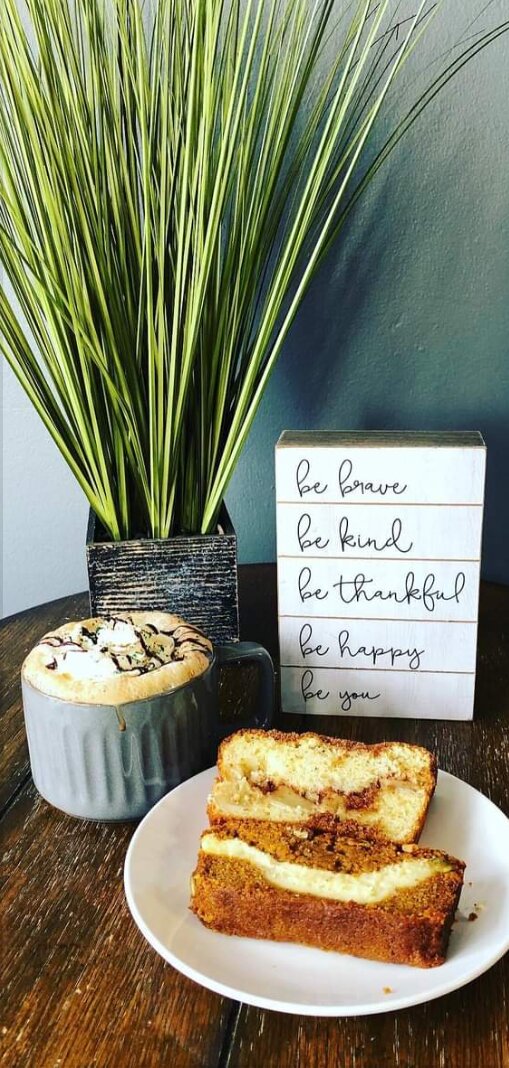 be brave
be kind
be thankful
be happy
be you